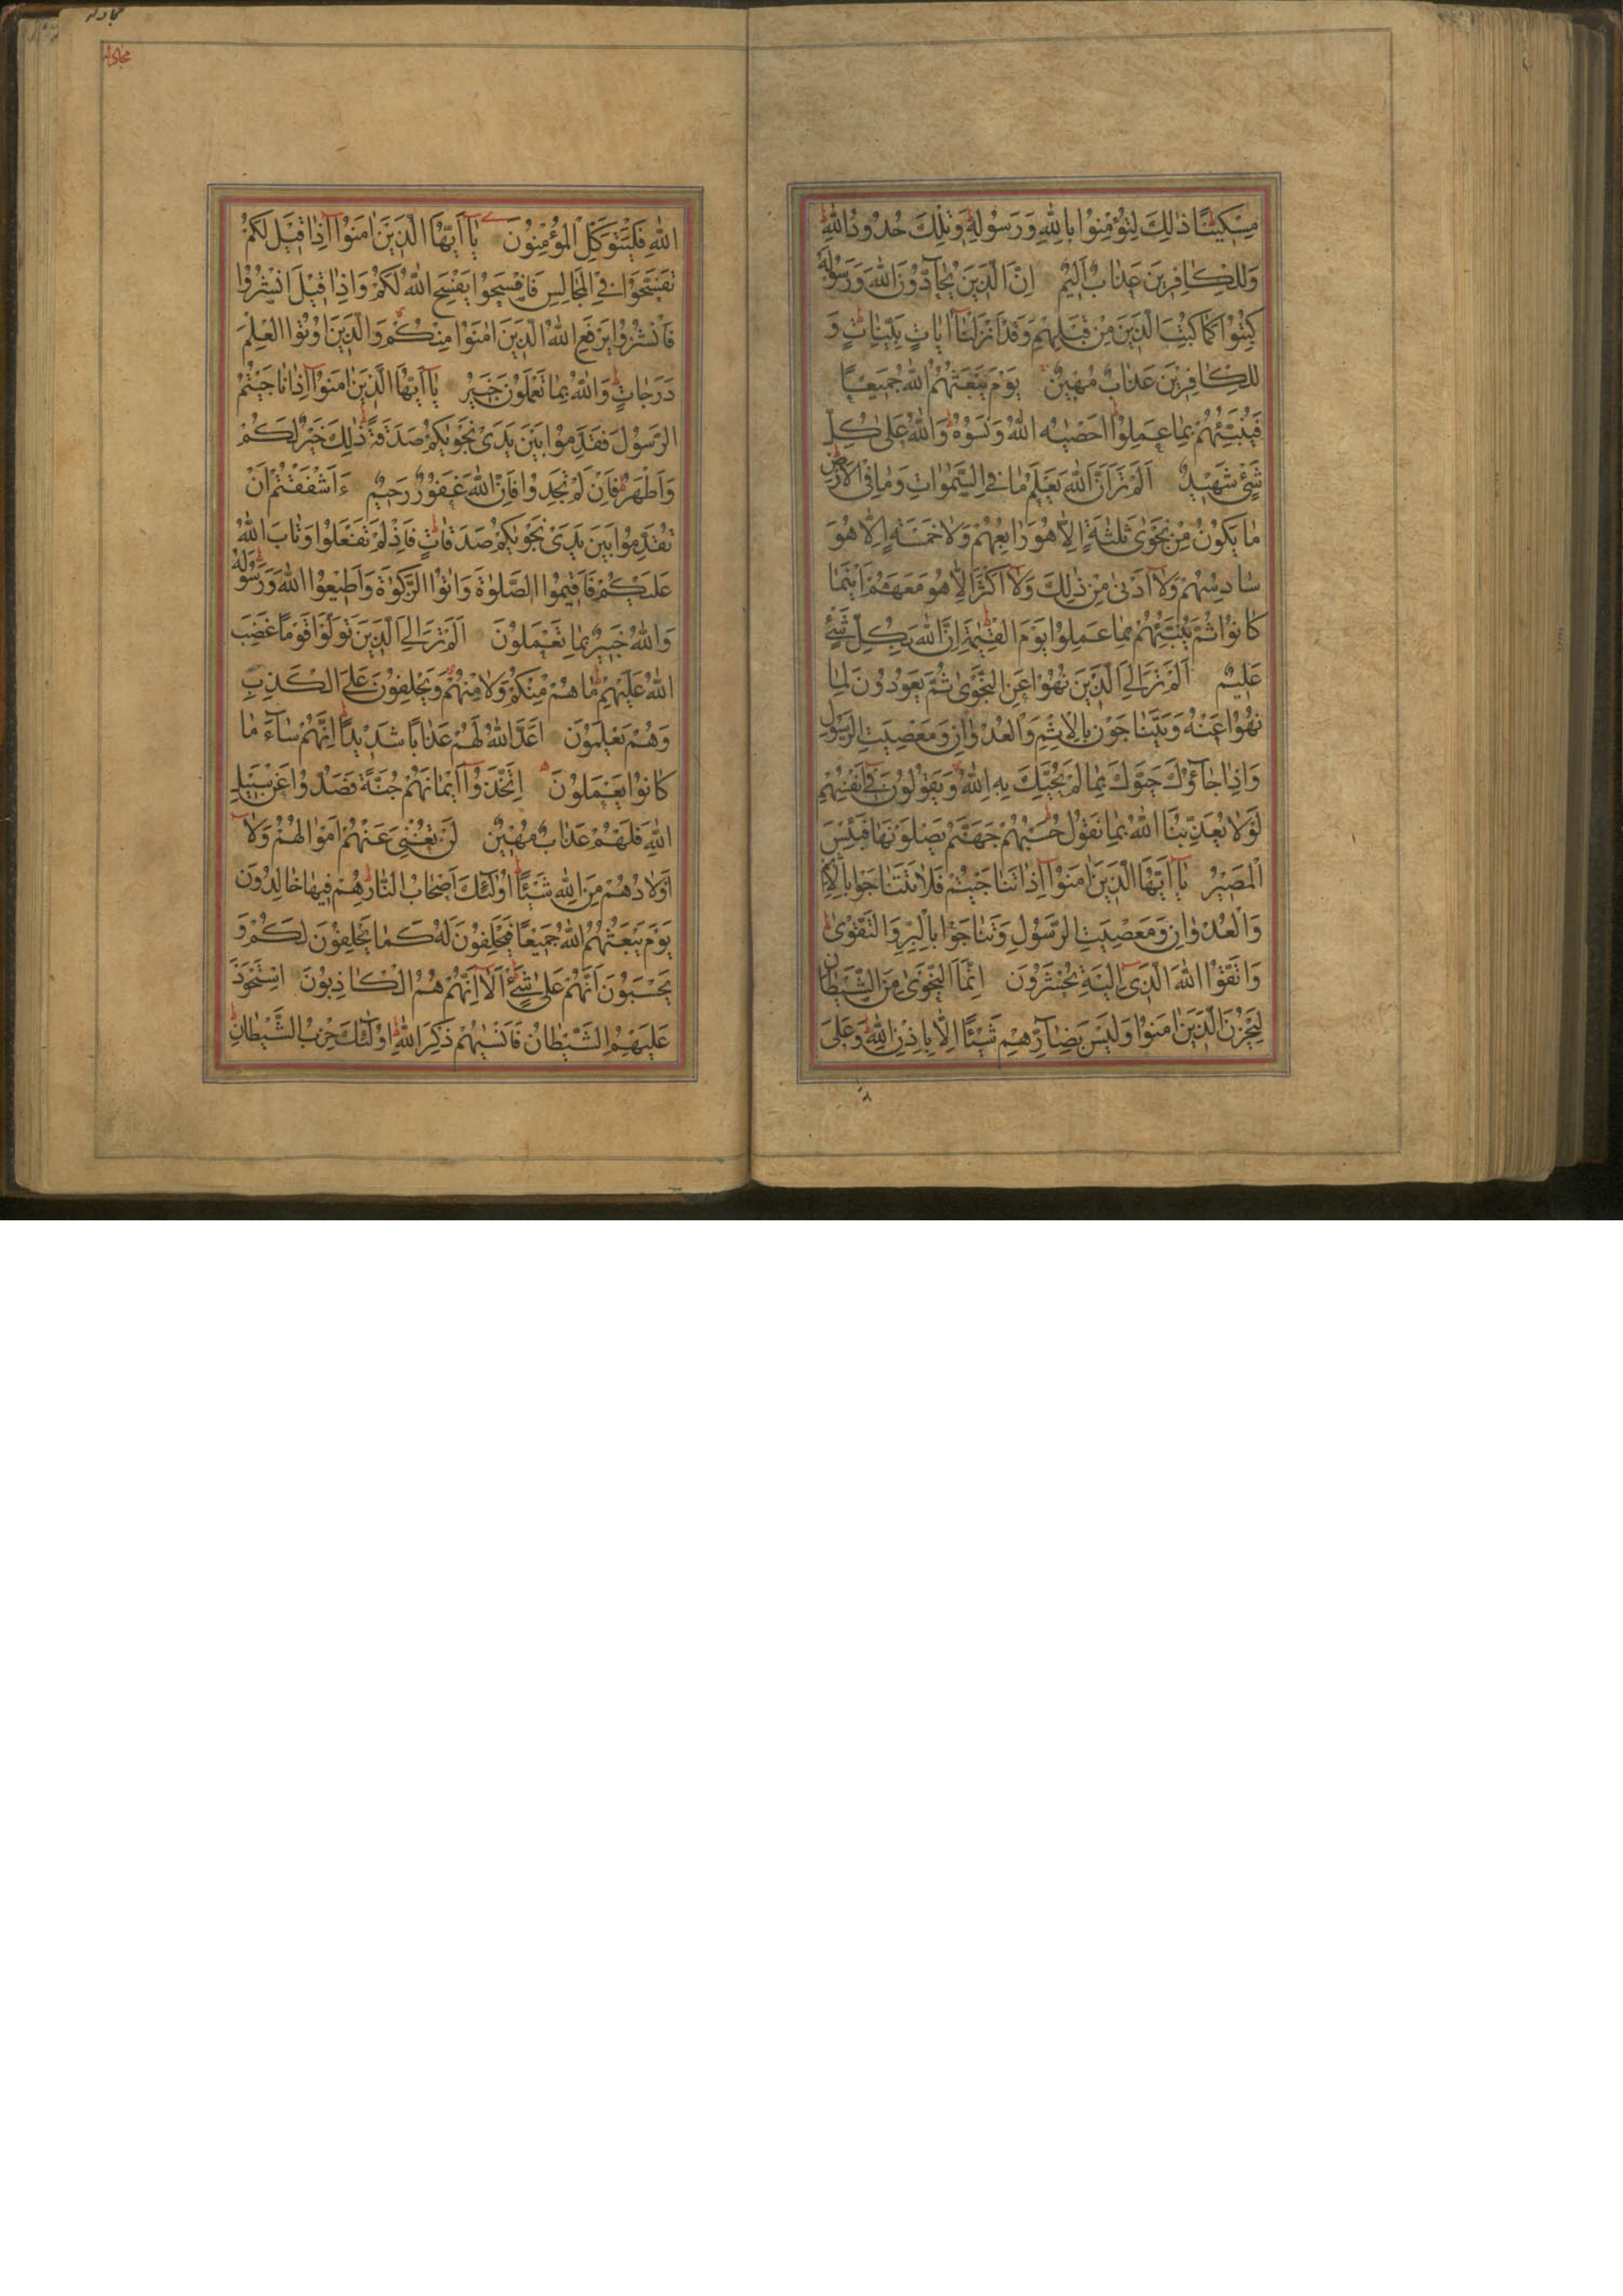 مِسْكِينًا ذٰلِكَ لِتُؤْمِنُوا بِاللّٰهِ وَرَسُولِهِ وَتِلْكَ حُدُودُ اللّٰهِ
وَلِلْكَافِرِينَ عَذَابٌ اَلِيمٌ اِنَّ الَّذِينَ يُحَآدُّونَ اللّٰهَ وَرَسُولَهُ
كُبِتُوا كَمَا كُبِتَ الَّذِينَ مِنْ قَبْلِهِمْ وَقَدْ اَنْزَلْنَآ اٰيَاتٍ بَيِّنَاتٍ وَ
لِلْكَافِرِينَ عَذَابٌ مُهِينٌ يَوْمَ يَبْعَثُهُمُ اللّٰهُ جَمِيعًا
فَيُنَبِّئُهُمْ بِمَا عَمِلُوا اَحْصٰيهُ اللّٰهُ وَنَسُوهُ وَاللّٰهُ عَلٰى كُلِّ
شَيْءٍ شَهِيدٌ اَلَمْ تَرَ اَنَّ اللّٰهَ يَعْلَمُ مَا فِي السَّمٰوَاتِ وَمَا فِي الْاَرْضِ
مَا يَكُونُ مِنْ نَجْوٰى ثَلٰثَةٍ اِلَّا هُوَ رَابِعُهُمْ وَلَا خَمْسَةٍ اِلَّا هُوَ
سَادِسُهُمْ وَلَآ اَدْنٰى مِنْ ذٰلِكَ وَلَآ اَكْثَرَ اِلَّا هُوَ مَعَهُمْ اَيْنَمَا
كَانُوا ثُمَّ يُنَبِّئُهُمْ بِمَا عَمِلُوا يَوْمَ الْقِيٰمَةِ اِنَّ اللّٰهَ بِكُلِّ شَيْءٍ
عَلِيمٌ اَلَمْ تَرَ اِلَى الَّذِينَ نُهُوا عَنِ النَّجْوٰى ثُمَّ يَعُودُونَ لِمَا
نُهُوا عَنْهُ وَيَتَنَاجَوْنَ بِالْاِثْمِ وَالْعُدْوَانِ وَمَعْصِيَتِ الرَّسُولِ
وَاِذَا جَآؤُكَ حَيَّوْكَ بِمَا لَمْ يُحَيِّكَ بِهِ اللّٰهُ وَيَقُولُونَ فِي اَنْفُسِهِمْ
لَوْلَا يُعَذِّبُنَا اللّٰهُ بِمَا نَقُولُ حَسْبُهُمْ جَهَنَّمُ يَصْلَوْنَهَا فَبِئْسَ
الْمَصِيرُ يَآ اَيُّهَا الَّذِينَ اٰمَنُوا اِذَا تَنَاجَيْتُمْ فَلَا تَتَنَاجَوْا بِالْاِثْمِ
وَالْعُدْوَانِ وَمَعْصِيَتِ الرَّسُولِ وَتَنَاجَوْا بِالْبِرِّ وَالتَّقْوٰى
وَاتَّقُوا اللّٰهَ الَّذِي اِلَيْهِ تُحْشَرُونَ اِنَّمَا النَّجْوٰى مِنَ الشَّيْطَانِ
لِيَحْزُنَ الَّذِينَ اٰمَنُوا وَلَيْسَ بِضَآرِّهِمْ شَيْئًا اِلَّا بِاِذْنِ اللّٰهِ وَعَلَى
مجادله
مجادله
اللّٰهِ فَلْيَتَوَكَّلِ الْمُؤْمِنُونَ يَآ اَيُّهَا الَّذِينَ اٰمَنُوا اِذَا قِيلَ لَكُمْ
تَفَسَّحُوا فِي الْمَجَالِسِ فَافْسَحُوا يَفْسَحِ اللّٰهُ لَكُمْ وَاِذَا قِيلَ انْشُزُوا
فَانْشُزُوا يَرْفَعِ اللّٰهُ الَّذِينَ اٰمَنُوا مِنْكُمْ وَالَّذِينَ اُوتُوا الْعِلْمَ
دَرَجَاتٍ وَاللّٰهُ بِمَا تَعْمَلُونَ خَبِيرٌ يَآ اَيُّهَا الَّذِينَ اٰمَنُوا اِذَا نَاجَيْتُمُ
الرَّسُولَ فَقَدِّمُوا بَيْنَ يَدَيْ نَجْوٰيكُمْ صَدَقَةً ذٰلِكَ خَيْرٌ لَكُمْ
وَاَطْهَرُ فَاِنْ لَمْ تَجِدُوا فَاِنَّ اللّٰهَ غَفُورٌ رَحِيمٌ ءَاَشْفَقْتُمْ اَنْ
تُقَدِّمُوا بَيْنَ يَدَيْ نَجْوٰيكُمْ صَدَقَاتٍ فَاِذْ لَمْ تَفْعَلُوا وَتَابَ اللّٰهُ
عَلَيْكُمْ فَاَقِيمُوا الصَّلٰوةَ وَاٰتُوا الزَّكٰوةَ وَاَطِيعُوا اللّٰهَ وَرَسُولَهُ
وَاللّٰهُ خَبِيرٌ بِمَا تَعْمَلُونَ اَلَمْ تَرَ اِلَى الَّذِينَ تَوَلَّوْا قَوْمًا غَضِبَ
اللّٰهُ عَلَيْهِمْ مَا هُمْ مِنْكُمْ وَلَا مِنْهُمْ وَيَحْلِفُونَ عَلَى الْكَذِبِ
وَهُمْ يَعْلَمُونَ اَعَدَّ اللّٰهُ لَهُمْ عَذَابًا شَدِيدًا اِنَّهُمْ سَآءَ مَا
كَانُوا يَعْمَلُونَ اِتَّخَذُوا اَيْمَانَهُمْ جُنَّةً فَصَدُّوا عَنْ سَبِيلِ
اللّٰهِ فَلَهُمْ عَذَابٌ مُهِينٌ لَنْ تُغْنِيَ عَنْهُمْ اَمْوَالُهُمْ وَلَآ
اَوْلَادُهُمْ مِنَ اللّٰهِ شَيْئًا اُولٰٓئِكَ اَصْحَابُ النَّارِ هُمْ فِيهَا خَالِدُونَ
يَوْمَ يَبْعَثُهُمُ اللّٰهُ جَمِيعًا فَيَحْلِفُونَ لَهُ كَمَا يَحْلِفُونَ لَكُمْ وَ
يَحْسَبُونَ اَنَّهُمْ عَلٰى شَيْءٍ اَلَآ اِنَّهُمْ هُمُ الْكَاذِبُونَ اِسْتَحْوَذَ
عَلَيْهِمُ الشَّيْطَانُ فَاَنْسٰيهُمْ ذِكْرَ اللّٰهِ اُولٰٓئِكَ حِزْبُ الشَّيْطَانِ